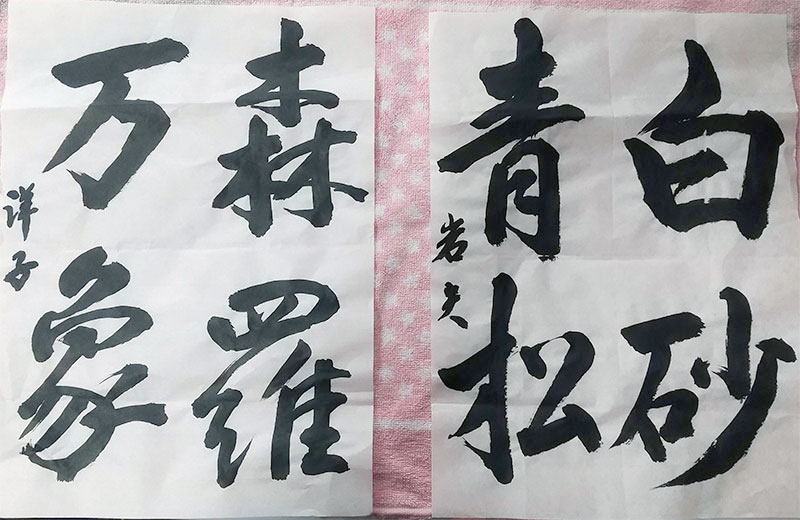 白砂
青松
岩夫
森羅
万象
洋子